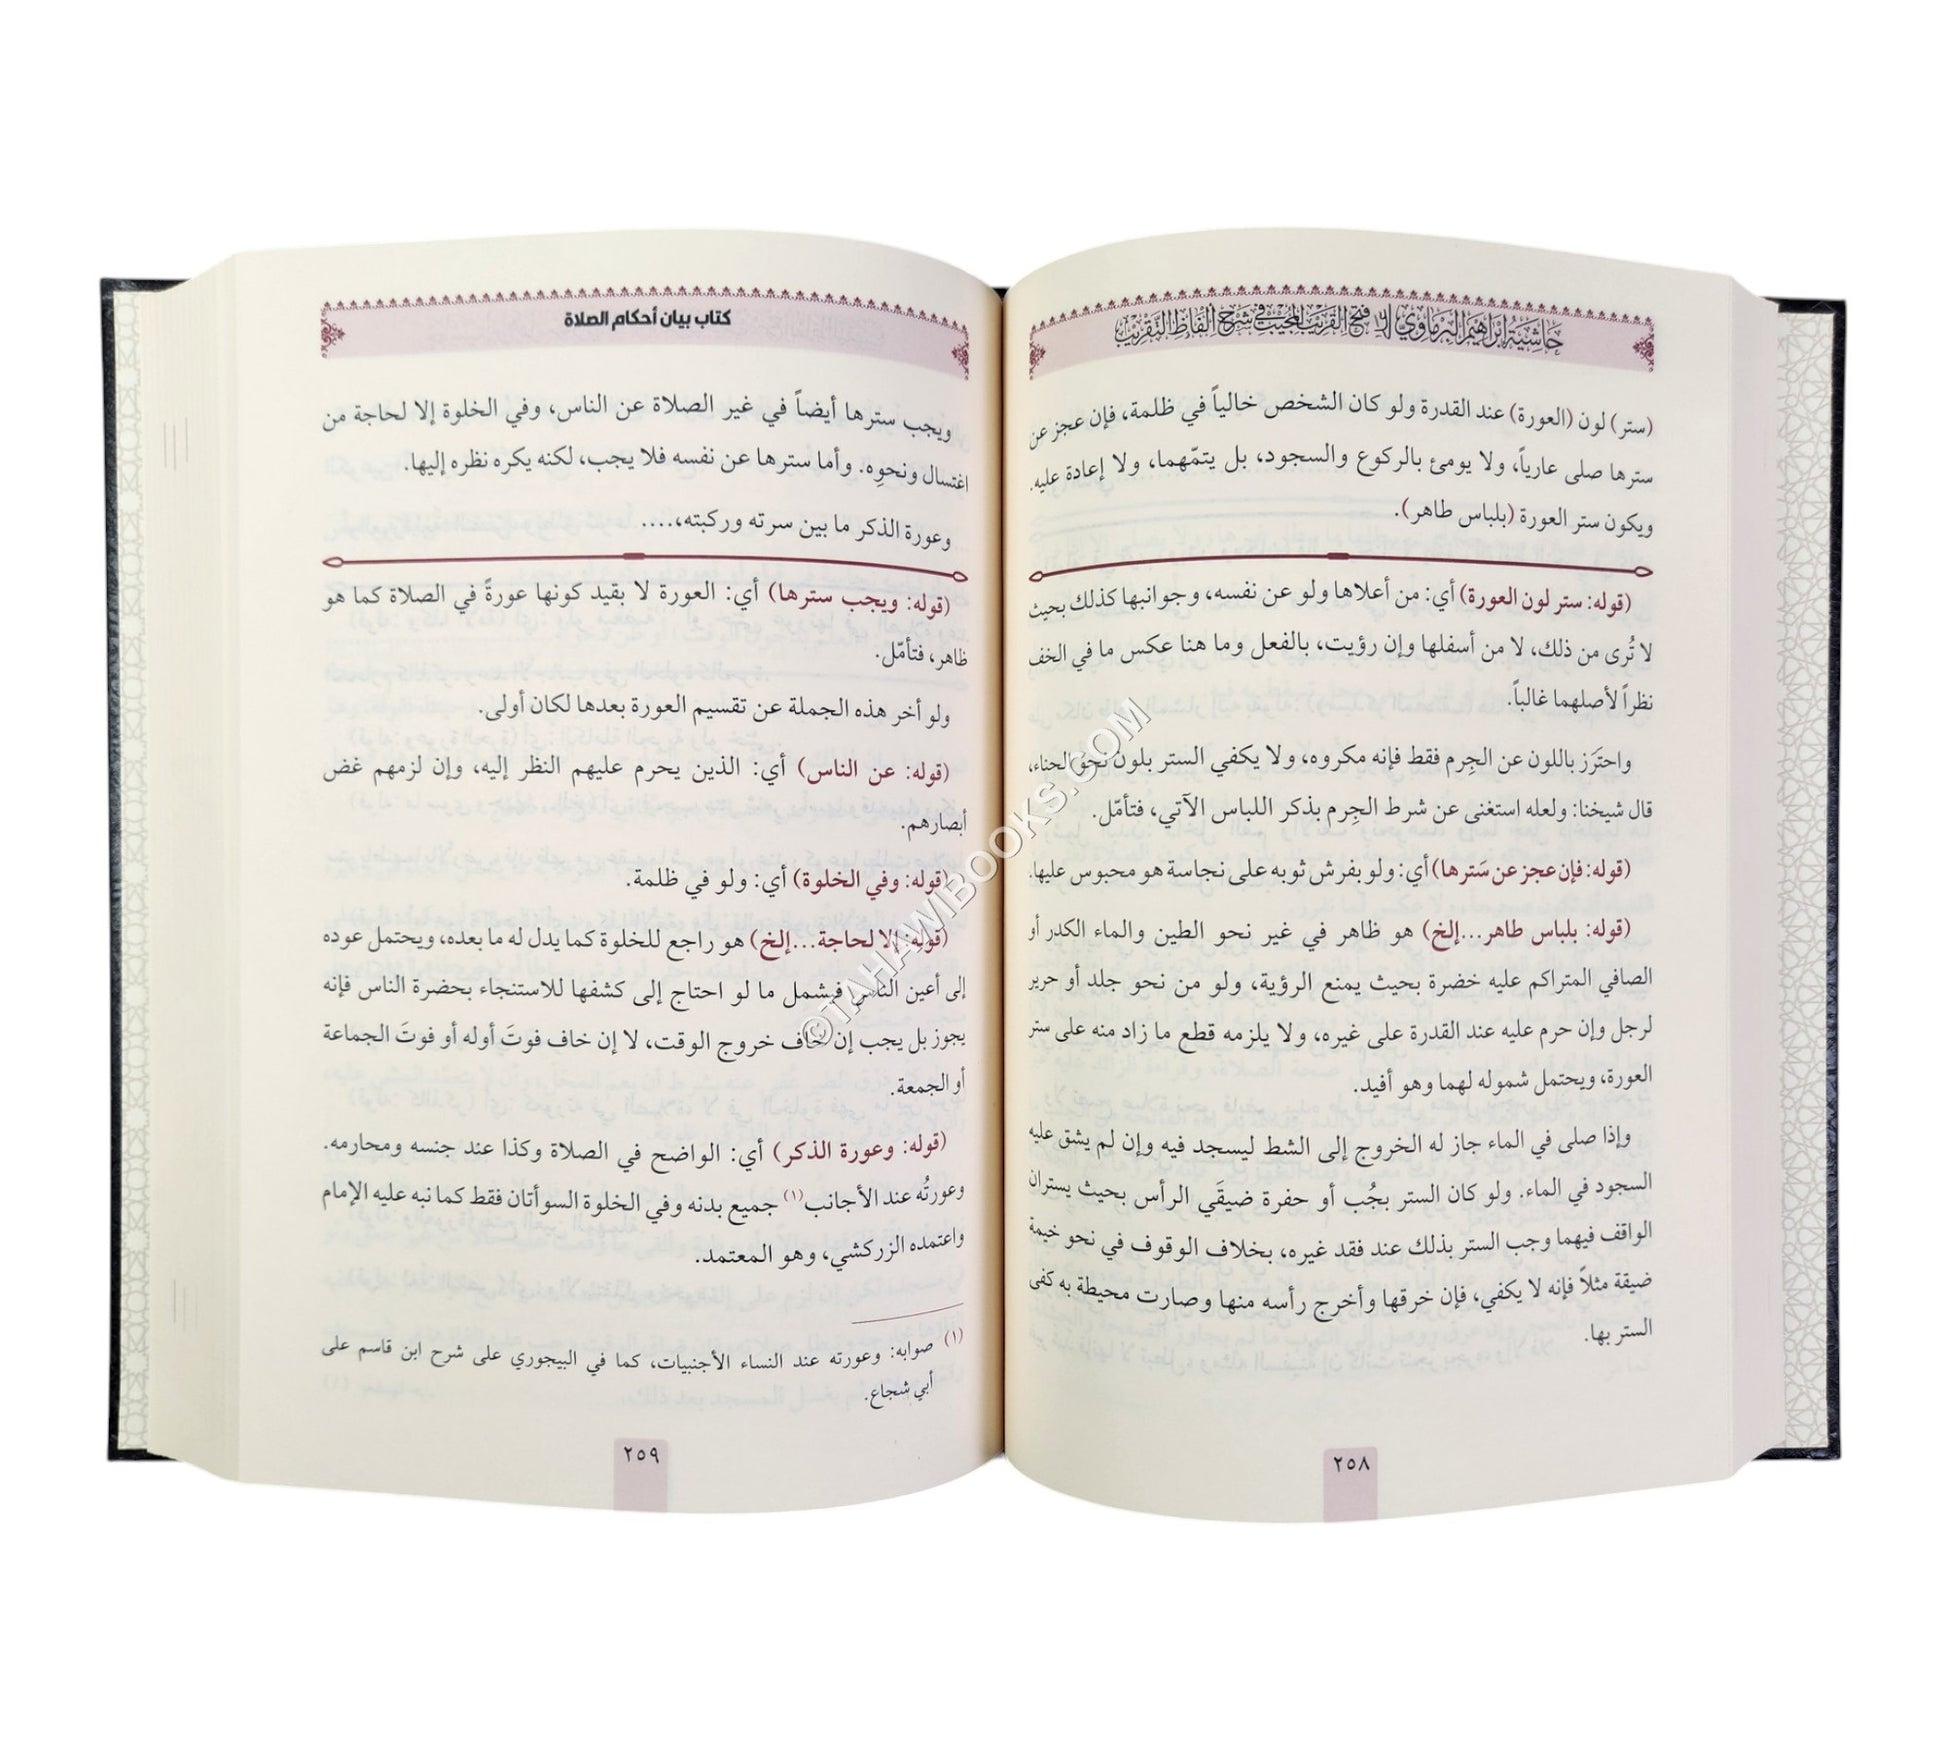 حاشية إبراهيم البرماوي على فتح القريب المجيب في شرح ألفاظ التقريب
(ستر) لون (العورة) عند القدرة ولو كان الشخص خالياً في ظلمة، فإن عجز عن
سترها صلى عارياً، ولا يومئ بالركوع والسجود، بل يتمّهما، ولا إعادة عليه.
ويكون ستر العورة (بلباس طاهر).
(قوله: ستر لون العورة) أي: من أعلاها ولو عن نفسه، وجوانبها كذلك بحيث
لا تُرى من ذلك، لا من أسفلها وإن رؤيت، بالفعل وما هنا عكس ما في الخف
نظراً لأصلهما غالباً.
واحترَز باللون عن الجِرم فقط فإنه مكروه، ولا يكفي الستر بلون نحو الحناء،
قال شيخنا: ولعله استغنى عن شرط الجِرم بذكر اللباس الآتي، فتأمّل.
(قوله: فإن عجز عن سَترها) أي: ولو بفرش ثوبه على نجاسة هو محبوس عليها.
(قوله: بلباس طاهر...إلخ) هو ظاهر في غير نحو الطين والماء الكدر أو
الصافي المتراكم عليه خضرة بحيث يمنع الرؤية، ولو من نحو جلد أو حرير
لرجل وإن حرم عليه عند القدرة على غيره، ولا يلزمه قطع ما زاد منه على ستر
العورة، ويحتمل شموله لهما وهو أفيد.
وإذا صلى في الماء جاز له الخروج إلى الشط ليسجد فيه وإن لم يشق عليه
السجود في الماء. ولو كان الستر بجُب أو حفرة ضيقَي الرأس بحيث يستران
الواقف فيهما وجب الستر بذلك عند فقد غيره، بخلاف الوقوف في نحو خيمة
ضيقة مثلاً فإنه لا يكفي، فإن خرقها وأخرج رأسه منها وصارت محيطة به كفى
الستر بها.
٢٥٨
كتاب بيان أحكام الصلاة
ويجب سترها أيضاً في غير الصلاة عن الناس، وفي الخلوة إلا لحاجة من
اغتسال ونحوِه. وأما سترها عن نفسه فلا يجب، لكنه يكره نظره إليها.
وعورة الذكر ما بين سرته وركبته،....
(قوله: ويجب سترها) أي: العورة لا بقيد كونها عورةً في الصلاة كما هو
ظاهر، فتأمّل.
ولو أخر هذه الجملة عن تقسيم العورة بعدها لكان أولى.
(قوله: عن الناس) أي: الذين يحرم عليهم النظر إليه، وإن لزمهم غض
أبصارهم.
(قوله: وفي الخلوة) أي: ولو في ظلمة.
(قوله: إلا لحاجة...إلخ) هو راجع للخلوة كما يدل له ما بعده، ويحتمل عوده
إلى أعين الناس فيشمل ما لو احتاج إلى كشفها للاستنجاء بحضرة الناس فإنه
يجوز بل يجب إن خاف خروج الوقت، لا إن خاف فوتَ أوله أو فوتَ الجماعة
أو الجمعة.
(قوله: وعورة الذكر) أي: الواضح في الصلاة وكذا عند جنسه ومحارمه.
وعورتُه عند الأجانب(١) جميع بدنه وفي الخلوة السوأتان فقط كما نبه عليه الإمام
واعتمده الزركشي، وهو المعتمد.
(١) صوابه: وعورته عند النساء الأجنبيات، كما في البيجوري على شرح ابن قاسم على
أبي شجاع.
٢٥٩
©TAHAMBOOKS.COM